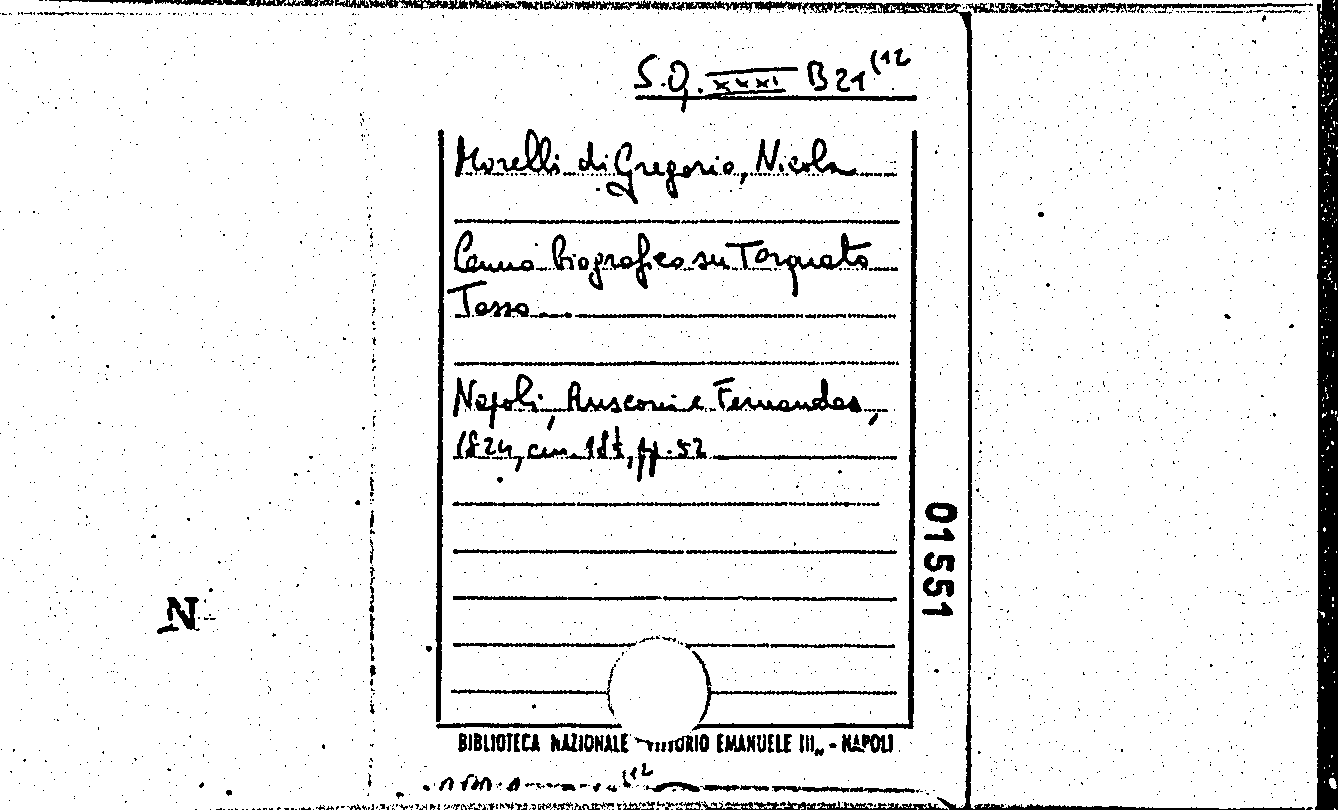 S.Q. XXXI B 21 (12
Morelli di Gregorio, Nicola
Cenno biografico su Torquato
Tasso
Napoli, Rusconi e Fernandes,
1824, cm. 18½, pp. 52
01551
N
BIBLIOTECA NAZIONALE "VITTORIO EMANUELE III„ - NAPOLI
(12